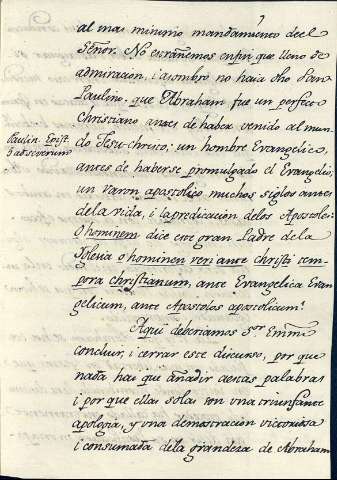 al mas minimo mandamiento deel
Señor. No estrañemos enfin que lleno de
admiracion, i asombro no haia dho San
Paulino, que Abraham fue un perfecto
Christiano antes de haber venido al mun-
do Jesu-christo; un hombre Evangelico,
antes de haberse promulgado el Evangelio;
un varon apostolico muchos siglos antes
de la vida, i la predicacion delos Apostoles.
O hominem dice este gran Padre de la
Iglesia o hominem veri ante christi tem-
pora christianum, ante Evangelica Evan-
gelicum, ante Apostolos apostolicum!
Paulin. Epist.
ad severum
Aqui deberiamos Sor. Emmo
concluir, i cerrar este discurso, por que
nada hai que añadir a estas palabras
i por que ellas solas son una triunfante
apologia, y una demostracion victoriosa
i consumada de la grandeza de Abraham